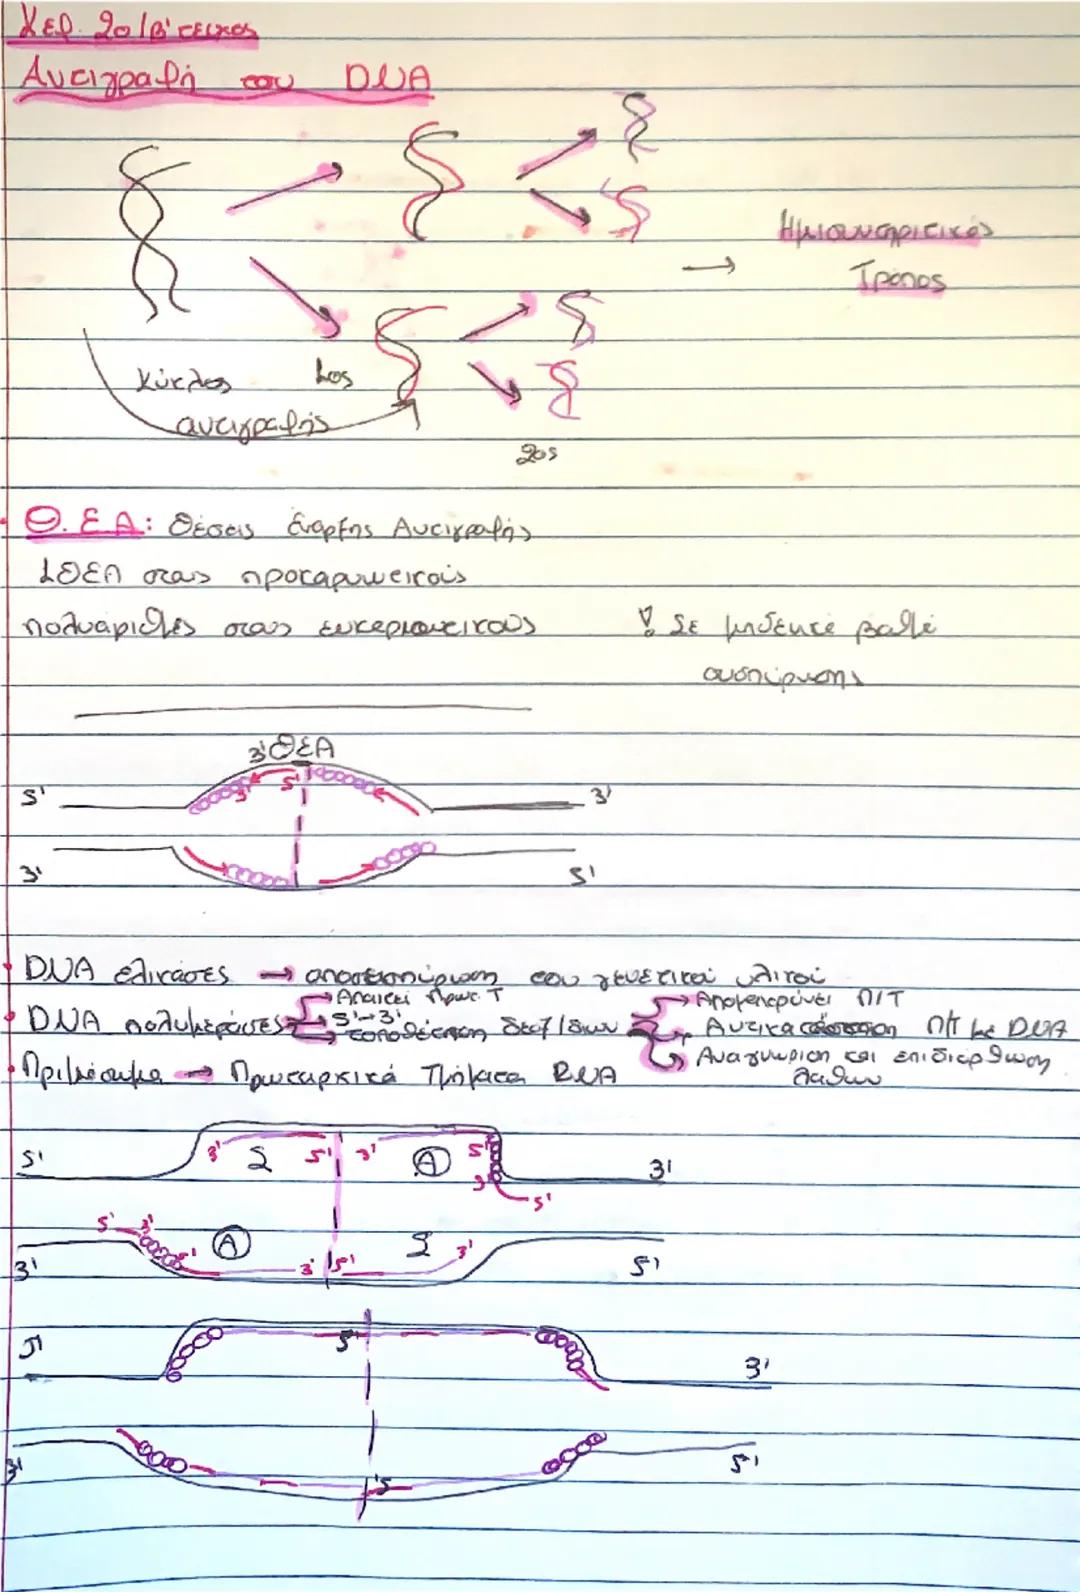 Κεφ. 2ο/Β' τεύχος
Αντιγραφή του DNA
Ημισυντηρητικός
Τρόπος
Κύκλος 1ος
αντιγραφής
2ος
Θ.Ε.Α: Θέσεις Έναρξης Αντιγραφής
1 ΘΕΑ στους προκαρυωτικούς
πολυάριθμες στους ευκαρυωτικούς
! Σε
συσπείρωσης
3' ΘΕΑ
5' 3' 5' 3'
3' 5'
DNA ελικάσες → αποσυσπείρωση του γενετικού υλικού
→ Απαιτεί Πρωτ. Τ → Απομακρύνει Π/Τ
DNA πολυμεράσες → 5'→3' → Αντικατάσταση Π/Τ με DNA
→ τοποθέτηση δεοξ/δίων → Αναγνώριση και επιδιόρθωση
λαθών
Πριμόσωμα → Πρωταρχικά Τμήματα RNA
5' 3' Σ 5' 3' Α 5' 3'
3' 5'
5' 3'
3' 5' Α 3' 5' Σ 3' 5'
5' 5' 3'
3' 5' 5'